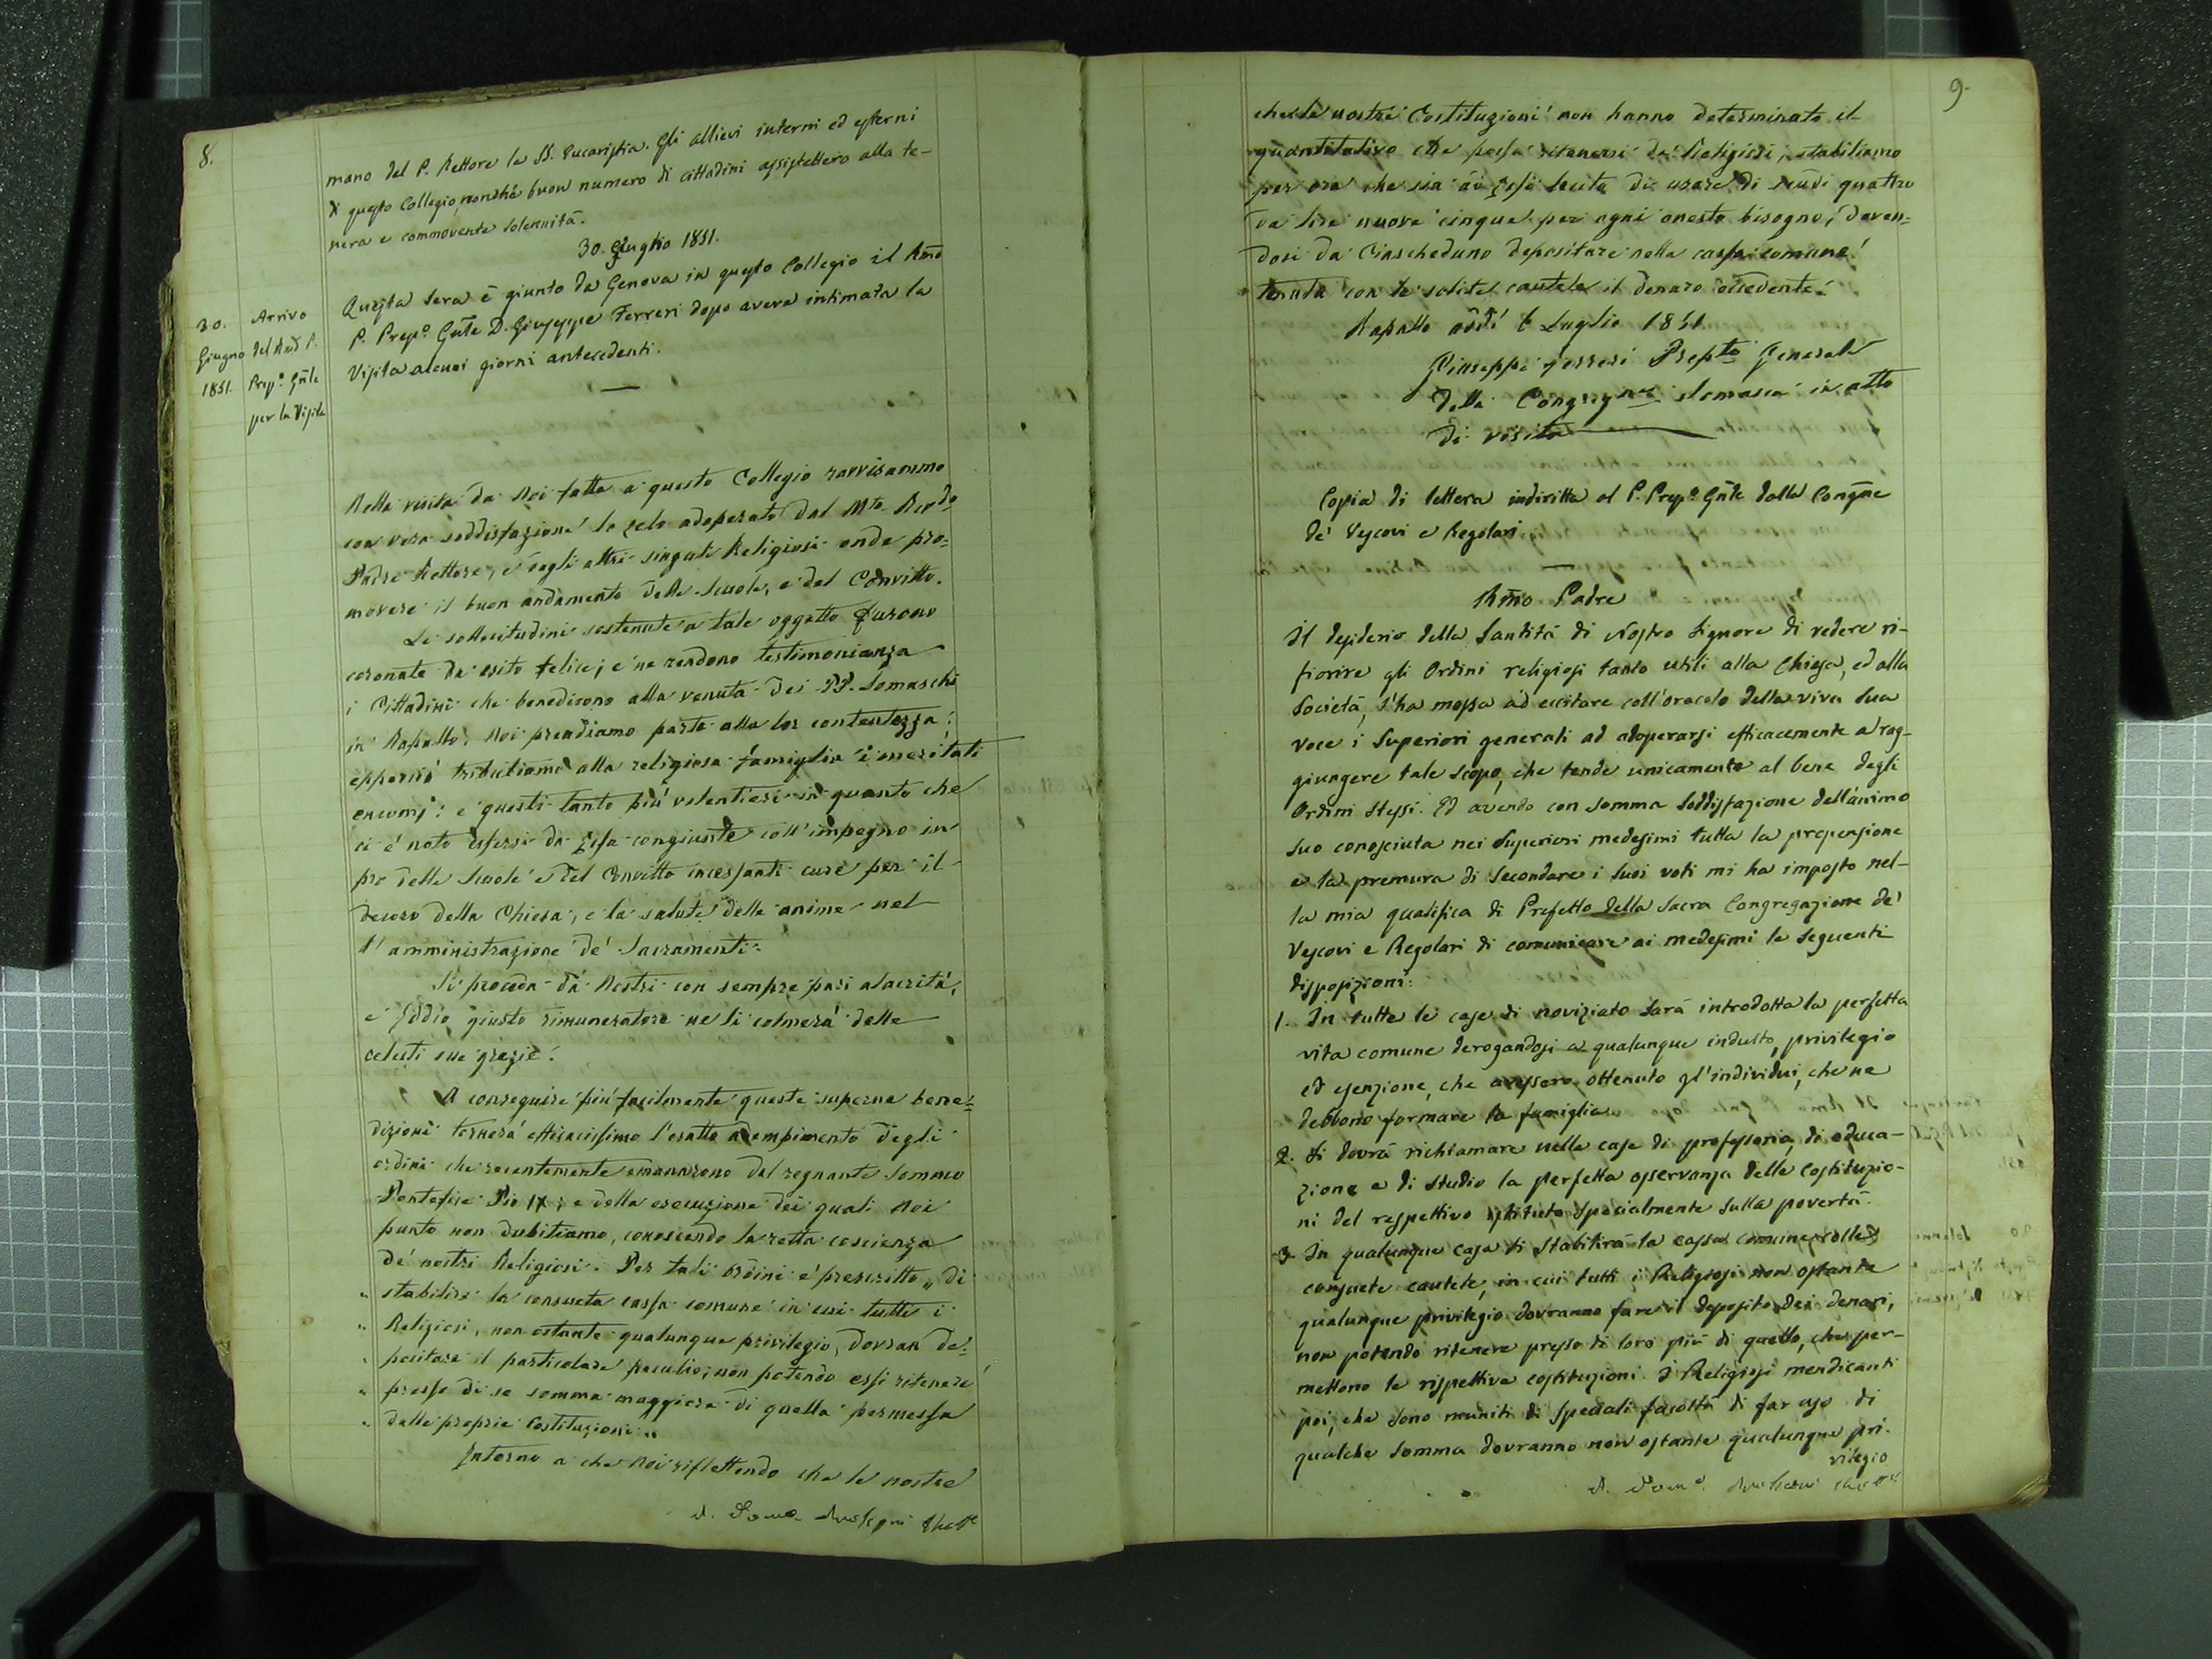 8.
mano del P. Rettore la SS. Eucaristia. Gli allievi interni ed esterni
di questo Collegio, nonchè buon numero di cittadini assistettero alla te-
nera e commovente solennità.
30. Giugno 1851.
30. Giugno 1851. Arrivo del Rmo P. Prep.o Gnle per la Visita
Questa sera è giunto da Genova in questo Collegio il Rmo
P. Prep.o Gnle D. Giuseppe Ferreri dopo avere intimata la
Visita alcuni giorni antecedenti.
Nella visita da Noi fatta a questo Collegio ravvisammo
con vera soddisfazione lo zelo adoperato dal Mto Revdo
Padre Rettore, e dagli altri singoli Religiosi onde pro=
movere il buon andamento delle Scuole, e del Convitto.
Le sollecitudini sostenute a tale oggetto furono
coronate da esito felice; e ne rendono testimonianza
i Cittadini che benedicono alla venuta dei PP. Somaschi
in Rapallo. Noi prendiamo parte alla lor contentezza:
epperciò tributiamo alla religiosa famiglia i meritati
encomj: e questi tanto più volentieri in quanto che
ci è noto essersi da Essa congiunte coll'impegno in
pro delle Scuole e del Convitto incessanti cure per il
decoro della Chiesa, e la salute delle anime nel
l'amministrazione de' Sacramenti.
Si proceda da' Nostri con sempre pari alacrità,
e Iddio giusto rimuneratore ne li colmerà delle
celesti sue grazie.
A conseguire più facilmente queste superne bene=
dizioni tornerà efficacissimo l'esatto adempimento degli
ordini che recentemente emanarono dal regnante Sommo
Pontefice Pio IX; e della esecuzione dei quali Noi
punto non dubitiamo, conoscendo la retta coscienza
de' nostri Religiosi. Per tali ordini è prescritto „ di
„ stabilire la consueta cassa comune in cui tutti i
„ Religiosi, non ostante qualunque privilegio, dovran de=
„ positare il particolare peculio; non potendo essi ritenere
„ presso di se somma maggiore di quella permessa
„ dalle proprie Costituzioni „
Intorno a che Noi riflettendo che le nostre
9.
che le nostre Costituzioni non hanno determinato il
quantitativo che possa ritenersi da' Religiosi, stabiliamo
per ora che sia ad Essi lecito di usare di scudi quattro
da lire nuove cinque per ogni onesto bisogno, doven=
dosi da Ciascheduno depositare nella cassa comune
tenuta con le solite cautele il denaro eccedente.
Rapallo addì 6 Luglio 1851
Giuseppe Ferreri Prepto Generale
della Congregne Somasca in atto
di visita
Copia di lettera indiritta al P. Prep.o Gnle dalla Congne
de' Vescovi e Regolari
Rmo Padre
Il desiderio della Santità di Nostro Signore di vedere ri-
fiorire gli Ordini religiosi tanto utili alla Chiesa, ed alla
Società, l'ha mossa ad eccitare coll'oracolo della viva Sua
voce i Superiori generali ad adoperarsi efficacemente a rag-
giungere tale scopo, che tende unicamente al bene degli
Ordini stessi. Ed avendo con somma soddisfazione dell'animo
Suo conosciuta nei Superiori medesimi tutta la propensione
e la premura di secondare i Suoi voti mi ha imposto nel-
la mia qualifica di Prefetto della Sacra Congregazione de'
Vescovi e Regolari di comunicare ai medesimi le seguenti
disposizioni:
1. In tutte le case di noviziato sarà introdotta la perfetta
vita comune derogandosi a qualunque indulto, privilegio
ed esenzione, che avessero ottenuto gl'individui, che ne
debbono formare la famiglia.
2. Si dovrà richiamare nelle case di professorio, di educa-
zione e di studio la perfetta osservanza delle costituzio-
ni del respettivo istituto specialmente sulla povertà.
3. In qualunque casa si stabilirà la cassa comune colle
consuete cautele, in cui tutti i Religiosi non ostante
qualunque privilegio dovranno fare il deposito dei denari,
non potendo ritenere presso di loro più di quello, che per-
mettono le rispettive costituzioni. I Religiosi mendicanti
poi, che sono muniti di speciali facoltà di far uso di
qualche somma dovranno non ostante qualunque pri-
vilegio